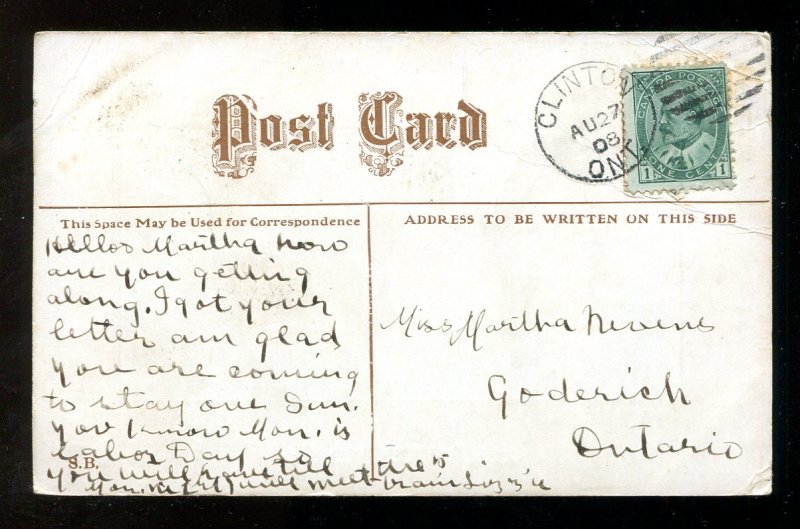 Post Card
CLINTON
AU 27
08
ONT.
CANADA POSTAGE
1 ONE CENT 1
This Space May be Used for Correspondence
ADDRESS TO BE WRITTEN ON THIS SIDE
Hello Martha how
are you getting
along. I got your
letter am glad
you are coming
to stay one Sun.
you know Mon. is
Labor Day so
you will have till
Mon. night I will meet the train Lizzie
S.B.
Miss Martha
Goderich
Ontario